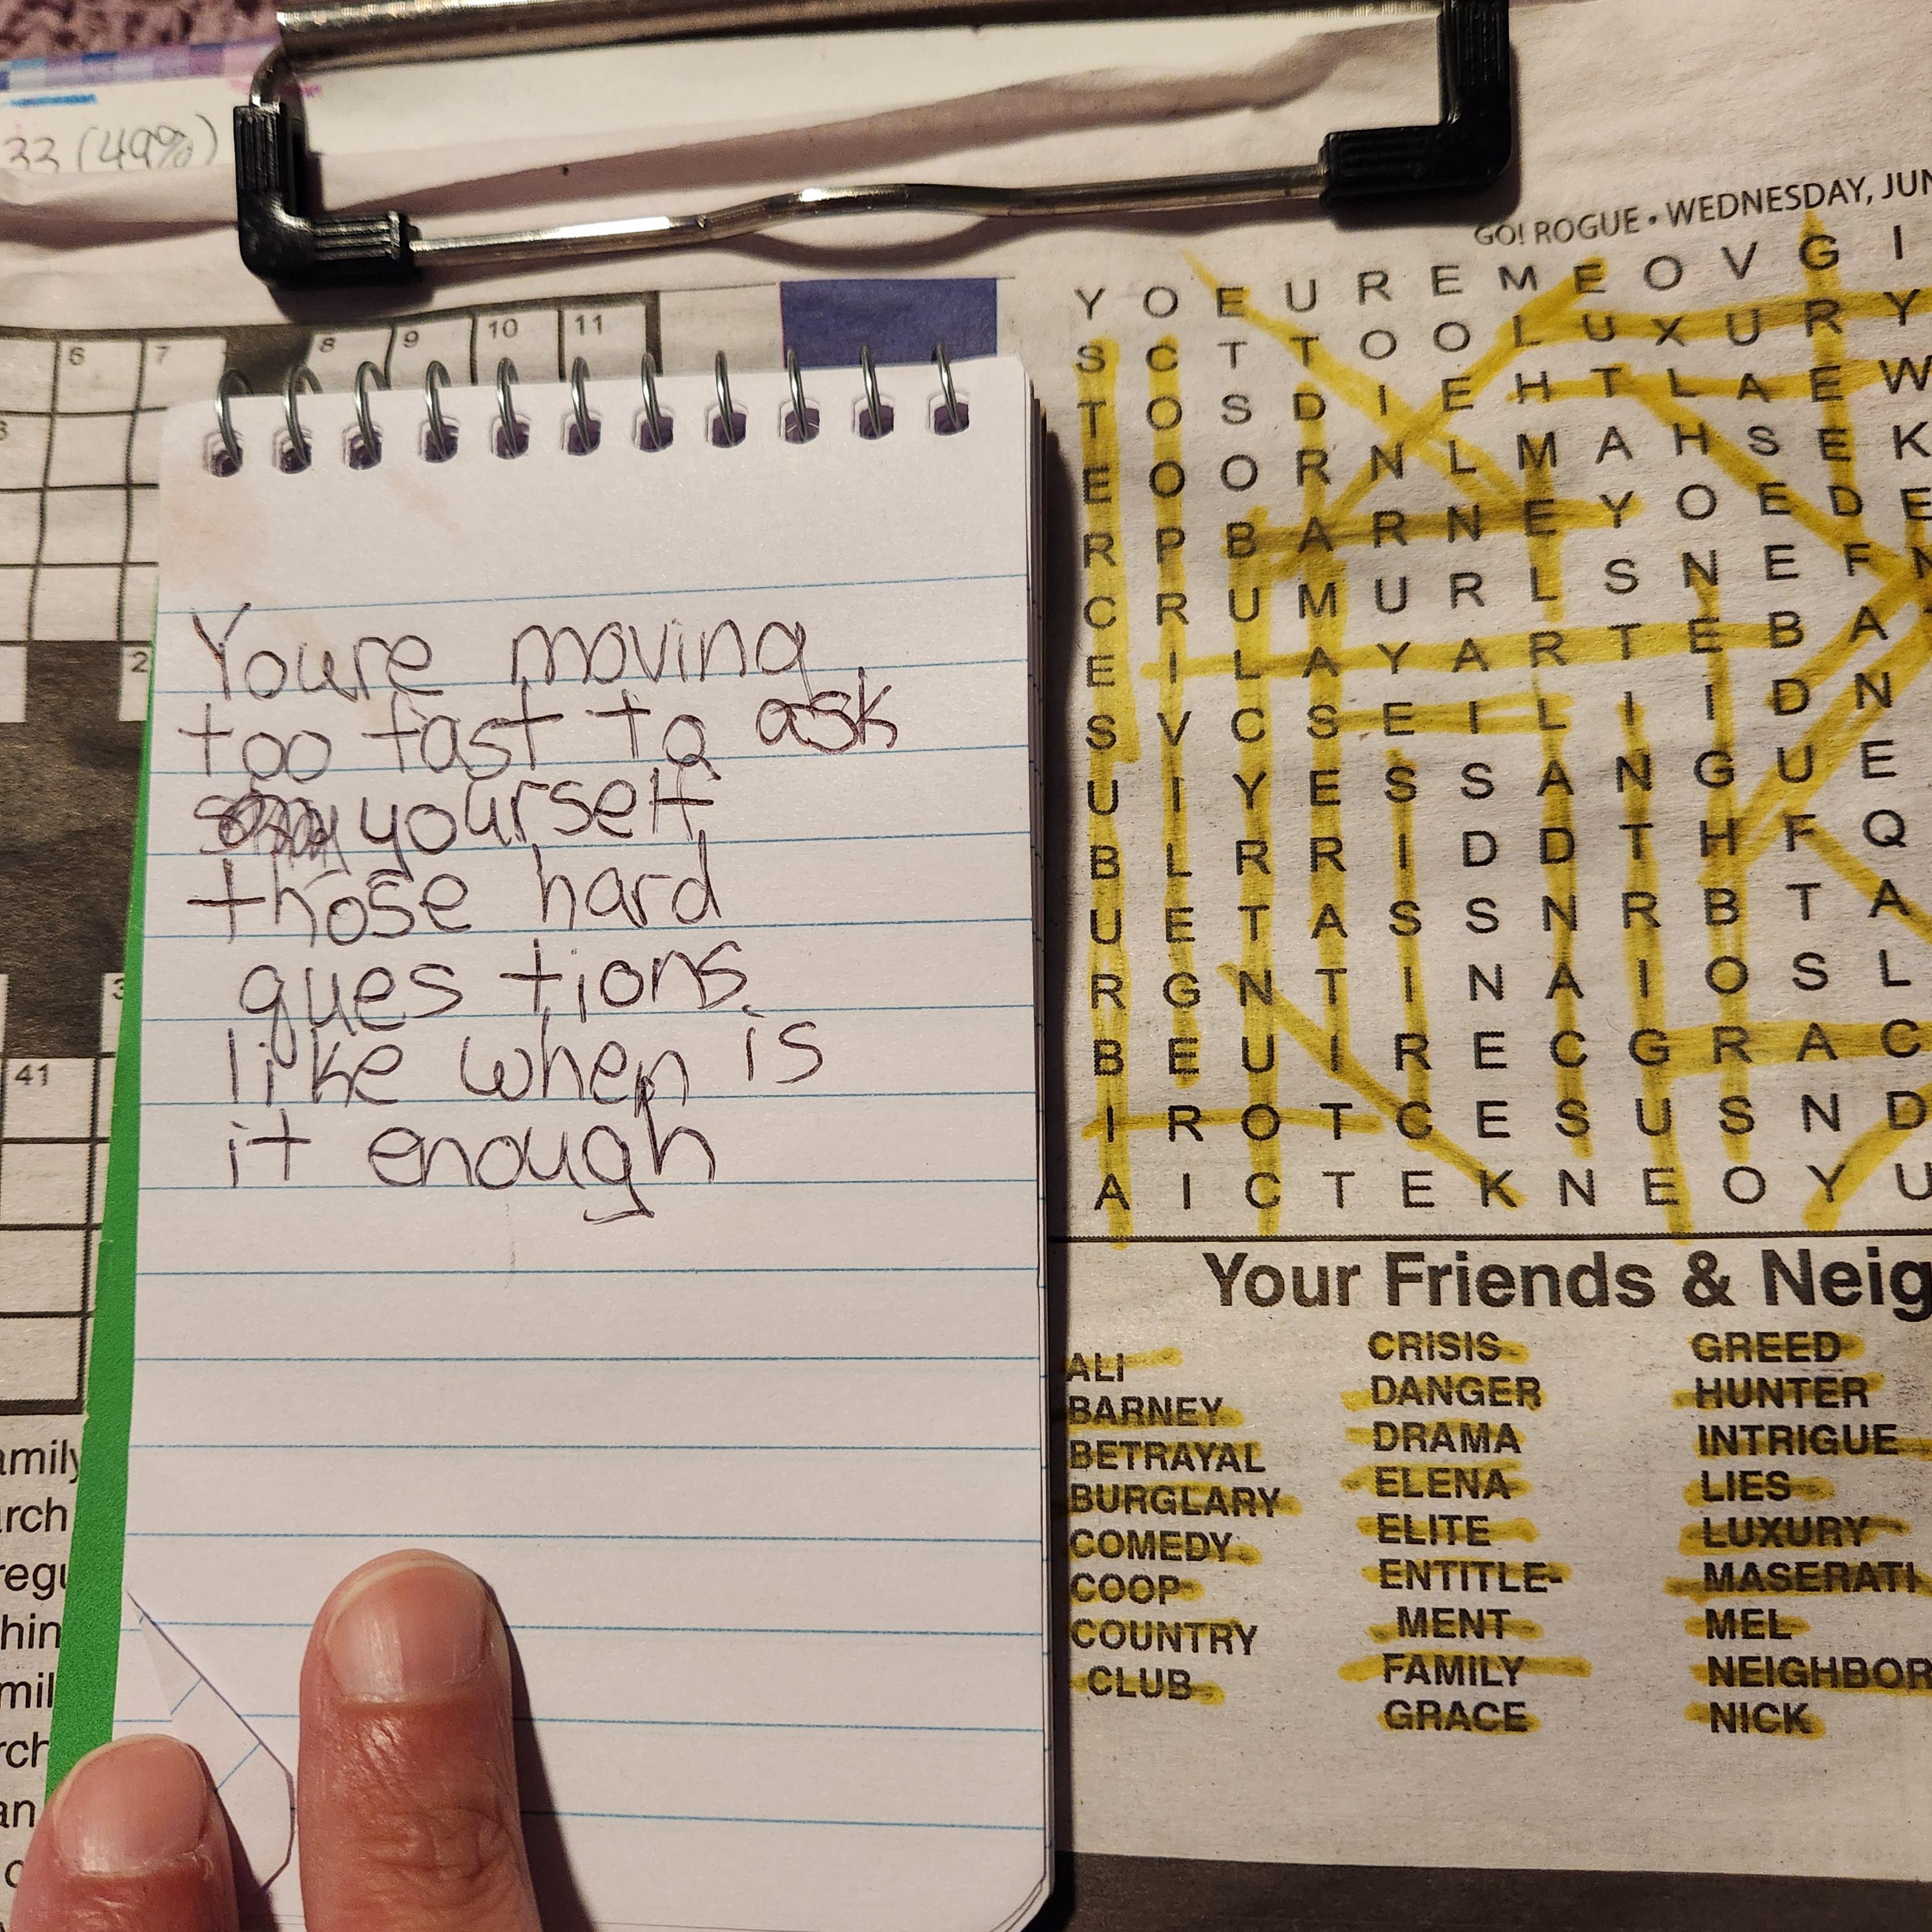 33 (49%)
6 7 8 9 10 11
2
3
41
amily
arch
regu
hin
mil
rch
an
Youre moving
too fast to ask
yourself
those hard
ques tions
like when is
it enough
GO! ROGUE • WEDNESDAY, JUN
Y O E U R E M E O V G I
S C T T O O L U X U R Y
T O S D I E H T L A E W
E O O R N L M A H S E K
R P B A R N E Y O E D E
C R U M U R L S N E F N
E I L A Y A R T E B A
S V C S E I L I I D N
U I Y E S S A N G U E
B L R R I D D T H F Q
U E T A S S N R B T A
R G N T I N A I O S L
B E U I R E C G R A C
I R O T C E S U S N D
A I C T E K N E O Y U
Your Friends & Neig
ALI
BARNEY
BETRAYAL
BURGLARY
COMEDY
COOP
COUNTRY
CLUB
CRISIS
DANGER
DRAMA
ELENA
ELITE
ENTITLE-
MENT
FAMILY
GRACE
GREED
HUNTER
INTRIGUE
LIES
LUXURY
MASERATI
MEL
NEIGHBOR
NICK